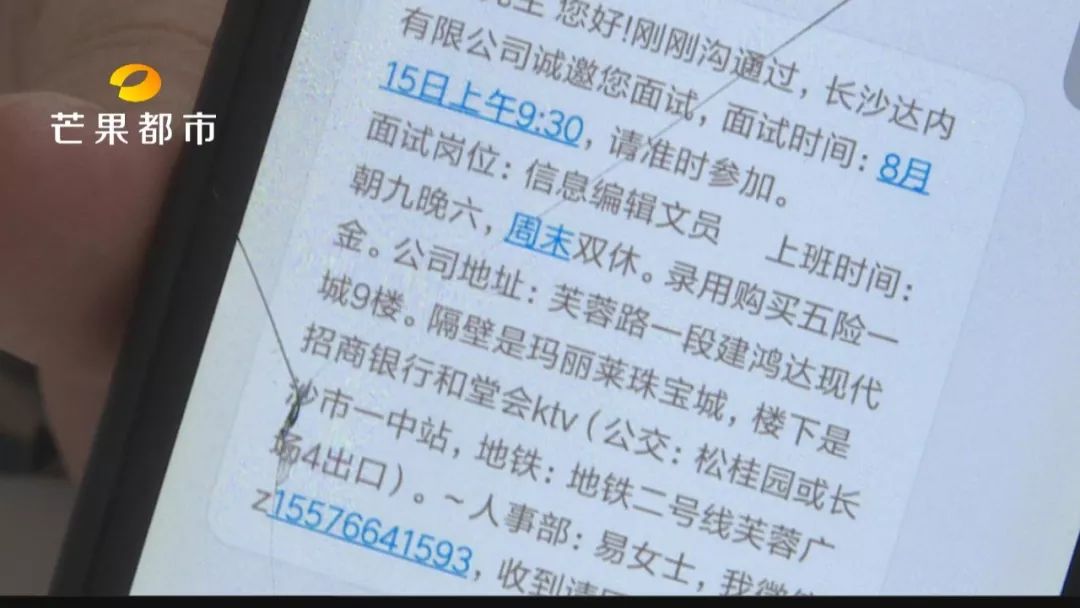 芒果都市
您好!刚刚沟通过，长沙达内
有限公司诚邀您面试，面试时间：8月
15日上午9:30，请准时参加。
面试岗位：信息编辑文员 上班时间：
朝九晚六，周末双休。录用购买五险一
金。公司地址：芙蓉路一段建鸿达现代
城9楼。隔壁是玛丽莱珠宝城，楼下是
招商银行和堂会ktv（公交：松桂园或长
沙市一中站，地铁：地铁二号线芙蓉广
场4出口）。~人事部：易女士，我微信
z15576641593，收到请回